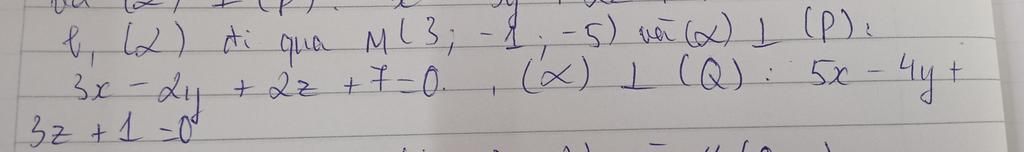 (α) ⊥ (P):
t, (α) đi qua M(3; -1; -5) và (α) ⊥ (P):
3x - 2y + 2z + 7 = 0. , (α) ⊥ (Q): 5x - 4y +
3z + 1 = 0